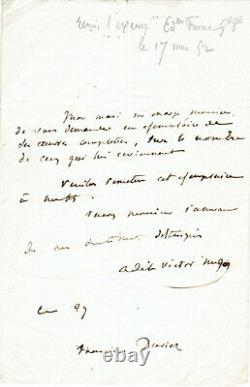 remis l'exemp
le 17 mai 52
Mon mari me charge monsieur
de vous demander un exemplaire de
ses œuvres complètes, sur le nombre
de ceux qui lui reviennent
Veuillez remettre cet exemplaire
à
Recevez monsieur l'assurance
de mes sentiments distingués
Adèle Victor Hugo
ce 27
Monsieur